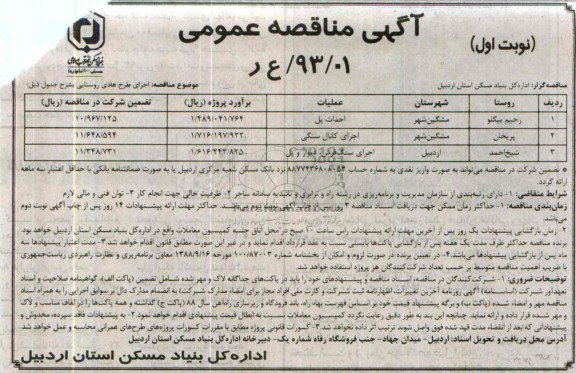 آگهی مناقصه عمومی
(نوبت اول)
۹۳/۰۱/ع ر
مناقصه‌گزار: اداره‌کل بنیاد مسکن استان اردبیل
موضوع مناقصه: اجرای طرح هادی روستایی بشرح جدول ذیل:
ردیف روستا شهرستان عملیات برآورد پروژه (ریال) تضمین شرکت در مناقصه (ریال)
۱ رحیم بیگلو مشگین‌شهر احداث پل ۱/۴۸۹/۰۴۱/۷۶۴ ۱۰/۹۶۷/۱۲۵
۲ پریخان مشگین‌شهر اجرای کانال سنگی ۱/۷۱۶/۱۹۷/۹۲۲ ۱۱/۶۴۸/۵۹۴
۳ شیخ‌احمد اردبیل اجرای سنگ‌فرش دیوار و پل ۱/۶۱۶/۲۴۳/۸۲۵ ۱۱/۳۴۸/۷۳۱
* تضمین شرکت در مناقصه می‌تواند به صورت واریز نقدی به شماره حساب ۸۸۷۷۲۳۶۸۰۸۰۵۴ نزد بانک مسکن شعبه مرکزی اردبیل یا به صورت ضمانتنامه بانکی با حداقل اعتبار سه ماهه
ارائه گردد.
شرایط متقاضی: ۱- دارای رتبه‌بندی از سازمان مدیریت و برنامه‌ریزی در رشته راه و ترابری و تائیدیه سامانه ساجر ۲- ظرفیت خالی جهت انجام کار ۳- توان فنی و مالی لازم
زمان‌بندی مناقصه: ۱- حداکثر زمان ممکن جهت دریافت اسناد مناقصه ۳ روز پس از چاپ آگهی نوبت دوم می‌باشد. حداکثر مهلت ارائه پیشنهادات ۱۴ روز پس از چاپ آگهی نوبت دوم
می‌باشد.
۲- زمان بازگشایی پیشنهادات یک روز پس از آخرین مهلت ارائه پیشنهادات راس ساعت ۱۰ صبح در محل اتاق جلسه کمیسیون معاملات واقع در اداره‌کل بنیاد مسکن استان اردبیل خواهد بود.
برنده مناقصه حداکثر ظرف مدت یک هفته پس از بازگشایی پاکت‌ها بایستی نسبت به عقد قرارداد اقدام نماید و در غیر این صورت مطابق قانون اقدام خواهد شد. ۳- مدت اعتبار پیشنهادها سه
ماه پس از بازگشایی پیشنهادها می‌باشد. ۴- در تعیین برنده در صورت لزوم و امکان از بخشنامه شماره ۱۰۰/۸۷۰۰۳ مورخه ۱۳۸۸/۹/۱۶ معاون برنامه‌ریزی و نظارت راهبردی ریاست‌جمهوری
با ضریب اهمیت مناقصه متوسط بر حسب تعداد شرکت‌کنندگان هر پروژه استفاده خواهد شد.
توضیحات ضروری: ۱- شرکت‌کنندگان در مناقصه، اسناد مناقصه و پیشنهادهای خود را باید در پاکت‌های جداگانه لاک و مهر شده شامل تضمین (پاکت الف)،
آدرس محل دریافت و تحویل اسناد: اردبیل- میدان جهاد- جنب فروشگاه رفاه شماره یک- دبیرخانه اداره‌کل بنیاد مسکن استان اردبیل
اداره‌کل بنیاد مسکن استان اردبیل